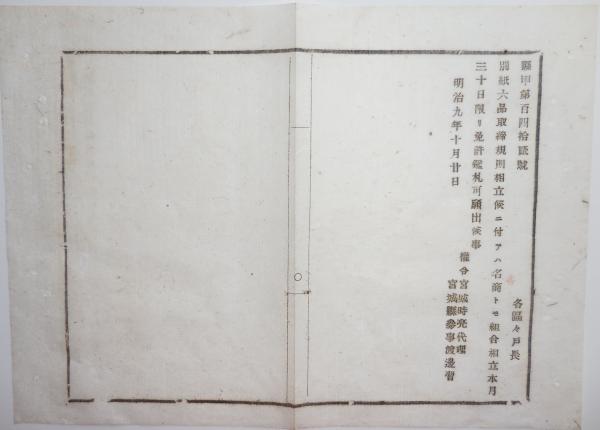 縣甲第百四拾號
各區々戸長
別紙六品取締規則相立候ニ付テハ各商トモ組合相立本月
三十日限リ免許鑑札可願出候事
明治九年十月廿日
權令宮城時亮代理
宮城縣參事渡邊